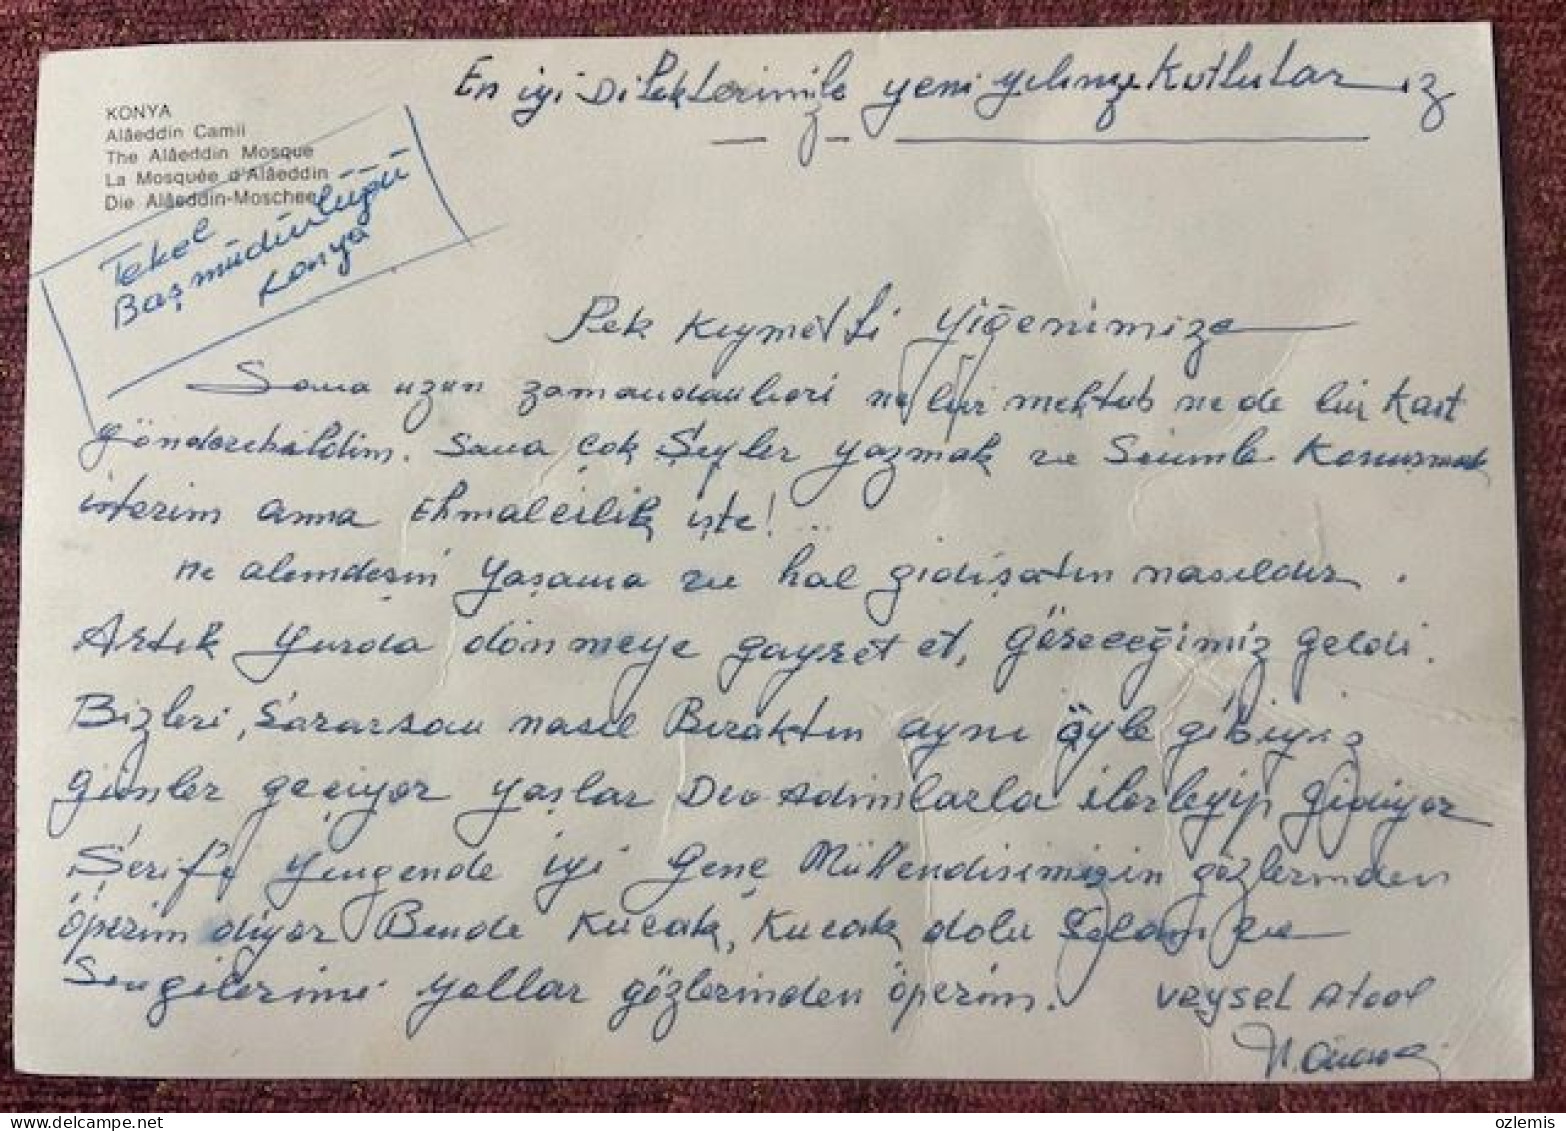 En iyi Dileklerimizle yeni yılınızı Kutlularız
KONYA
Alâeddin Camii
The Alâeddin Mosque
La Mosquée d'Alâeddin
Die Alâeddin-Moschee
Tekel
Başmüdürlüğü
Konya
Pek kıymetli Yiğenimize
Sana uzun zamandanberi ne bir mektub nede bir kart
gönderebildim. Sana çok Şeyler yazmak ve Seninle Konuşmak
isterim amma Ehmalcilik işte! ...
ne alemdesin Yaşama ve hal gidişatın nasıldır.
Artık Yurda dönmeye gayret et, göreceğimiz geldi.
Bizleri, Sorarsan nasıl Bıraktın aynı öyle gibiyiz
günler geçiyor yaşlar Dev Adımlarla ilerleyip gidiyor
Şerife Yengende iyi Genç Mühendisimizin gözlerinden
öperim diyor Bende Kucak, Kucak dolu Selam ve
Sevgilerimi yollar gözlerinden öperim. Veysel
delcampe.net
ozlemis